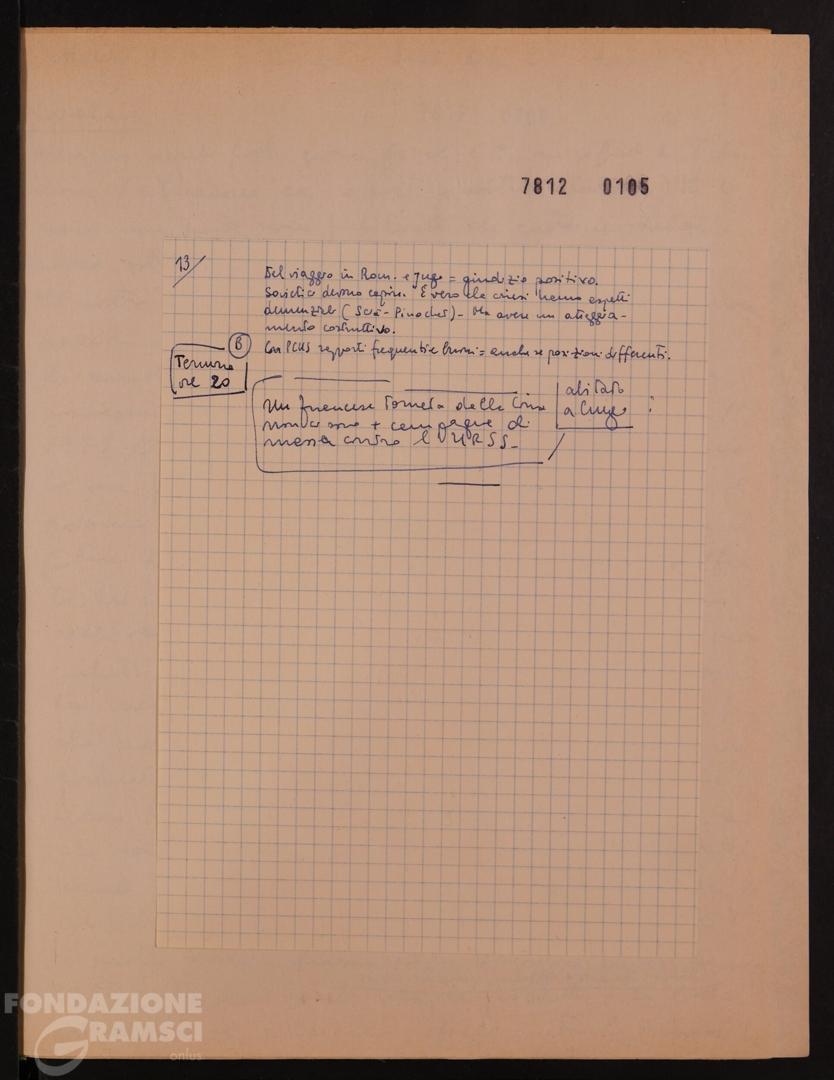 7812 0105
13/
Sul viaggio in Rom. e Jugo = giudizio positivo.
Sovietici devono capire. È vero che cinesi hanno aspetti
demenziali (Scià - Pinochet) - Ma avere un atteggia-
mento costruttivo.
B
Con PCUS rapporti frequenti e buoni = anche se posizioni differenti.
Termina
ore 20
Un francese tornato dalla Cina
non ci sono + campagne di
massa contro l'URSS -
abitato
a
FONDAZIONE
GRAMSCI
onlus